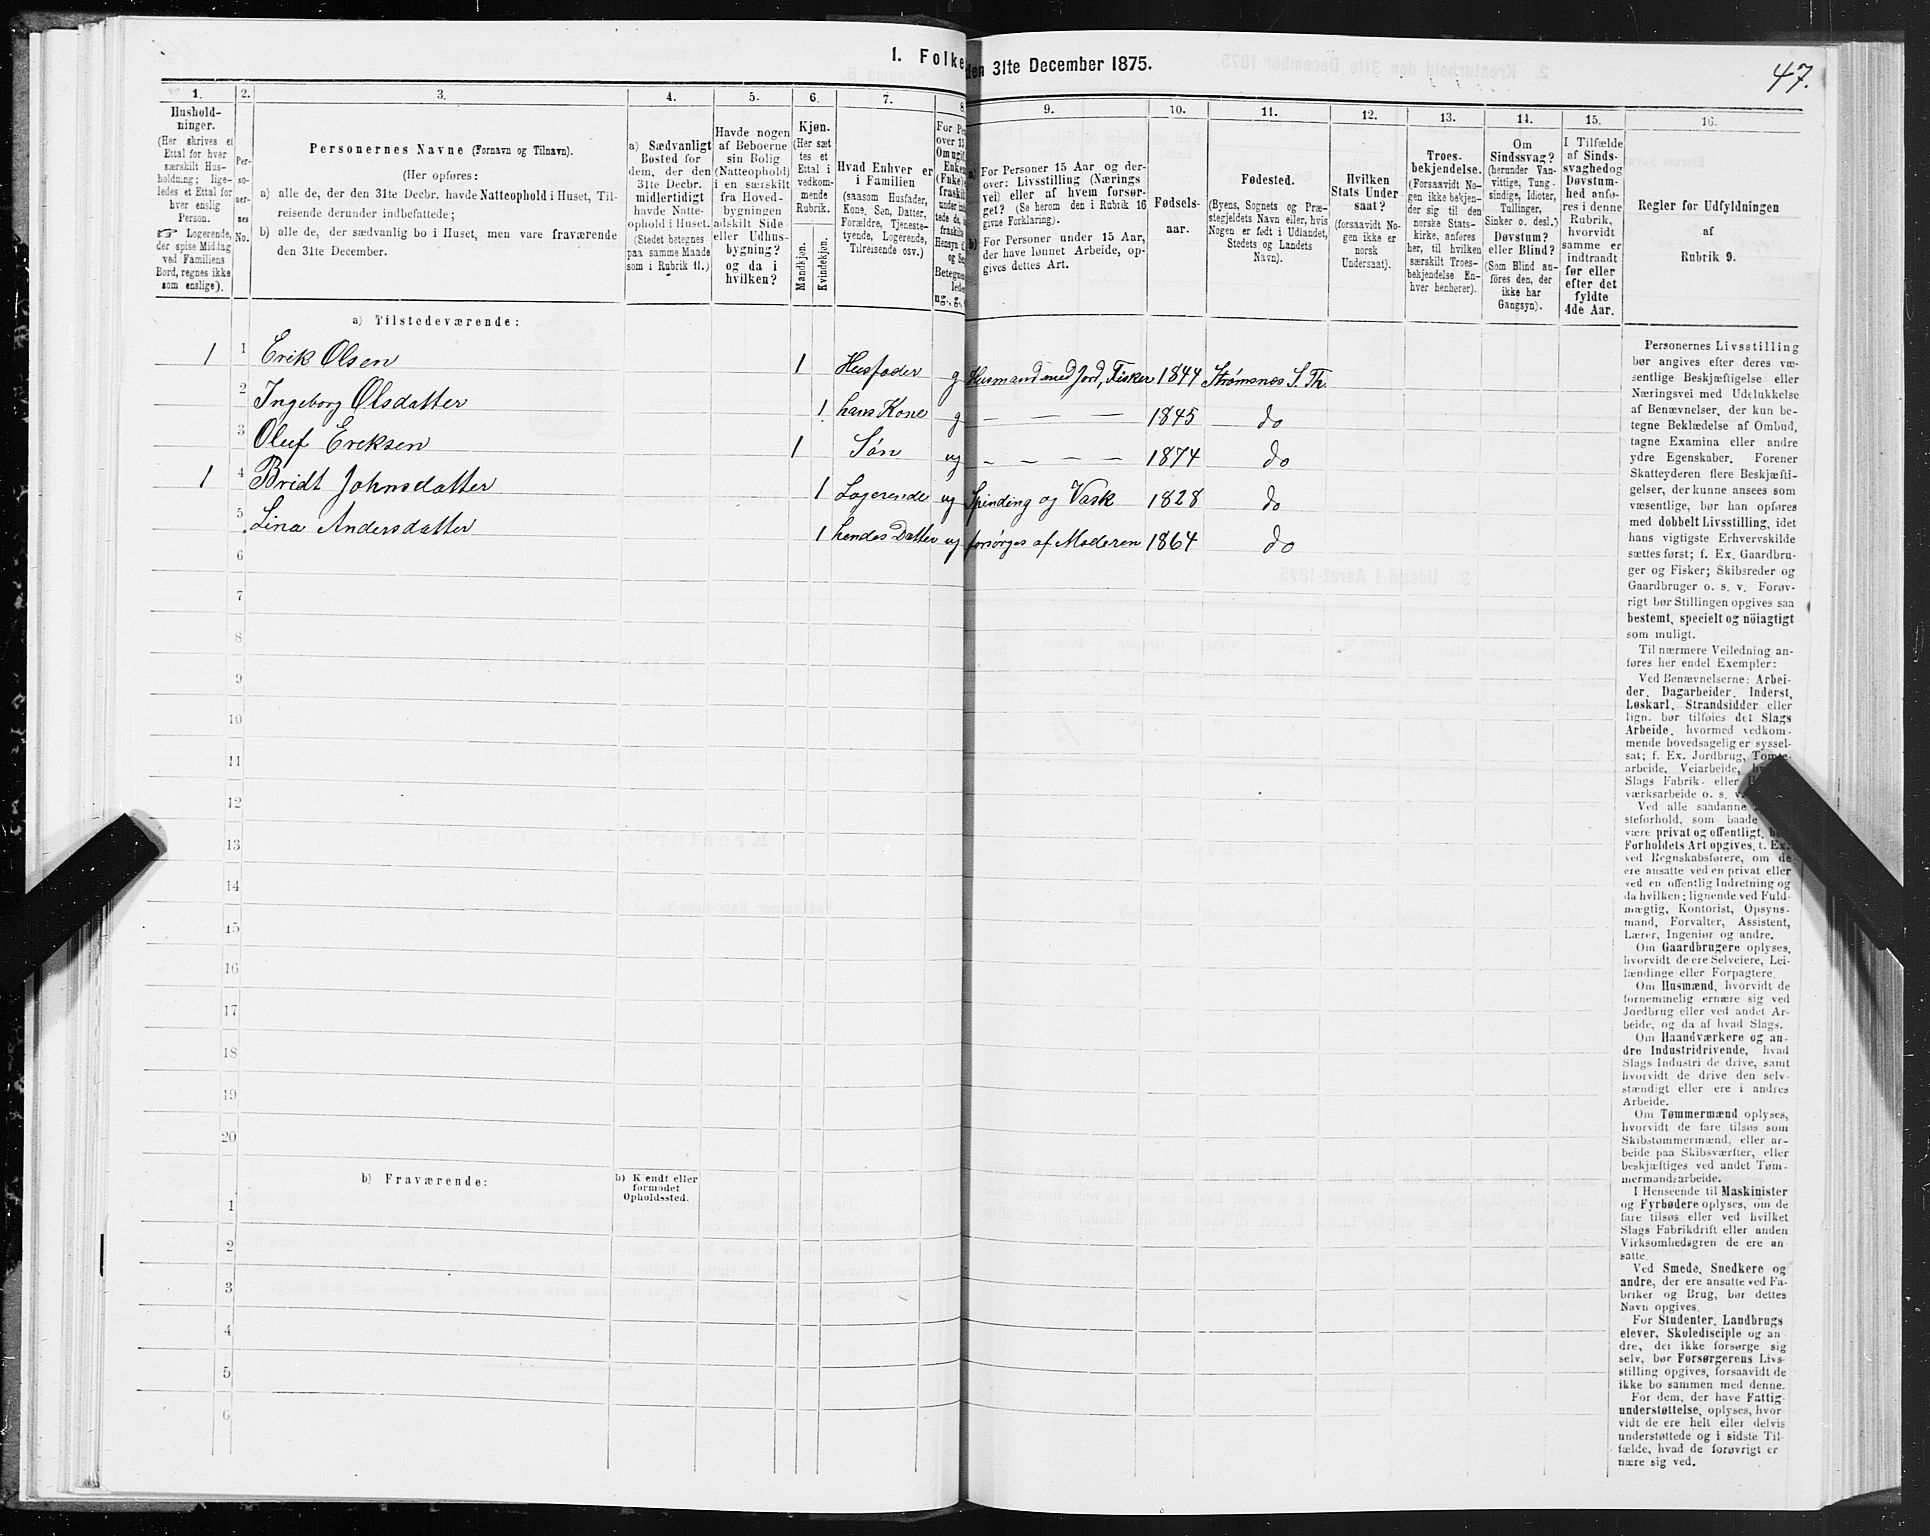 1. Folke den 31te December 1875.
47.
1. 2. 3. 4. 5. 6. 7. 8. 9. 10. 11. 12. 13. 14. 15. 16.
Hushold-
ninger.
(Her skrives et
Ettal for hver
særskilt Hus-
holdning; lige-
ledes et Ettal for
hver enslig
Person.
☞ Logerende,
der spise Middag
ved Familiens
Bord, regnes ikke
som enslige).
Per-
so-
ner-
nes
No.
Personernes Navne (Fornavn og Tilnavn).
(Her opføres:
a) alle de, der den 31te Decbr. havde Natteophold i Huset, Til-
reisende derunder indbefattede;
b) alle de, der sædvanlig bo i Huset, men vare fraværende
den 31te December.
a) Sædvanligt
Bosted for
dem, der den
31te Decbr.
midlertidigt
havde Natte-
ophold i Huset.
(Stedet betegnes
paa samme Maade
som i Rubrik 11.)
Havde nogen
af Beboerne
sin Bolig
(Natteophold)
i en særskilt
fra Hoved-
bygningen
adskilt Side-
eller Udhus-
bygning?
og da i
hvilken?
Kjøn.
(Her sæt
tes et
Ettal i
vedkom-
mende
Rubrik.
Mandkjøn.
Kvindekjøn.
Hvad Enhver er
i Familien
(saasom Husfader,
Kone, Søn, Datter,
Forældre, Tjeneste-
tyende, Logerende,
Tilreisende osv.)
For Pe
over 15
Om ugif
Enke
(Fuke)
fraskil
under
tede de,
fraskilte
Hensyn
og Se
Betegne
lede
ug., g.,
a)
For Personer 15 Aar og der-
over: Livsstilling (Nærings
vei) eller af hvem forsør-
get? (Se herom den i Rubrik 16
givne Forklaring).
b)
For Personer under 15 Aar,
der have lønnet Arbeide, op-
gives dettes Art.
Fødsels-
aar.
Fødested.
(Byens, Sognets og Præ-
stegjeldets Navn eller, hvis
Nogen er født i Udlandet,
Stedets og Landets
Navn).
Hvilken
Stats Under-
saat?
(forsaavidt No-
gen ikke er
norsk
Undersaat).
Troes-
bekjendelse.
(Forsaavidt No-
gen ikke bekjen-
der sig til den
norske Stats-
kirke, anføres
her, til hvilken
særskilt Troes-
bekjendelse En-
hver henhører).
Om
Sindssvag?
(herunder Van-
vittige, Tung-
sindige, Idioter,
Tullinger,
Sinker o. desl.)
Døvstum?
eller Blind?
(Som Blind an-
føres den, der
ikke har
Gangsyn).
I Tilfælde
af Sinds-
svaghedog
Døvstum-
hed anfø-
res i denne
Rubrik,
hvorvidt
samme er
indtraadt
før eller
efter det
fyldte
4de Aar.
Regler for Udfyldningen
af
Rubrik 9.
a) Tilstedeværende:
1 1 Erik Olsen 1 Husfader g Husmand med Jord, Fisker 1844 Strømsnes S. Th.
2 Ingeborg Olsdatter 1 hans Kone g — — — 1845 do
3 Oluf Ereksen 1 Søn ug — — — — 1874 do
1 4 Bridt Johnsdatter 1 Logerende ug Spinding og Vask 1828 do
5 Lina Andersdatter 1 hendes Datter ug forsørges af Moderen 1864 do
6
7
8
9
10
11
12
13
14
15
16
17
18
19
20
b) Fraværende:
b) Kjendt eller
formodet
Opholdssted.
1
2
3
4
5
6
Personernes Livsstilling
bør angives efter deres væ-
sentlige Beskjæftigelse eller
Næringsvei med Udelukkelse
af Benævnelser, der kun be-
tegne Beklædelse af Ombud,
tagne Examina eller andre
ydre Egenskaber. Forener
Skatteyderen flere Beskjæfti-
gelser, der kunne ansees som
væsentlige, bør han opføres
med dobbelt Livsstilling, idet
hans vigtigste Erhvervskilde
sættes først; f. Ex. Gaardbru-
ger og Fisker; Skibsreder og
Gaardbruger o. s. v. Forøv-
rigt bør Stillingen opgives saa
bestemt, specielt og nöiagtigt
som muligt.
Til nærmere Veiledning an-
føres her endel Exempler:
Ved Benævnelserne: Arbei-
der, Dagarbeider, Inderst,
Løskarl, Strandsidder eller
lign. bør tilføies det Slags
Arbeide, hvormed vedkom-
mende hovedsagelig er syssel-
sat; f. Ex. Jordbrug, Tømte-
arbeide, Veiarbeide,
Slags Fabrik- eller
værksarbeide o. s. v.
Ved alle saadanne
steforhold, som baade
være privat og offentligt,
Forholdets Art opgives, f. Ex.
ved Regnskabsførere, om de
ere ansatte ved en privat eller
ved en offentlig Indretning og
da hvilken; lignende ved Fuld-
mægtig, Kontorist, Opsyns-
mand, Forvalter, Assistent,
Lærer, Ingeniør og andre.
Om Gaardbrugere oplyses,
hvorvidt de ere Selveiere, Lei-
lændinge eller Forpagtere.
Om Husmænd, hvorvidt de
fornemmelig ernære sig ved
Jordbrug eller ved andet Ar-
beide, og da af hvad Slags.
Om Haandværkere og an-
dre Industridrivende, hvad
Slags Industri de drive, samt
hvorvidt de drive den selv-
stændigt eller ere i andres
Arbeide.
Om Tømmermænd oplyses,
hvorvidt de fare tilsøs som
Skibstømmermænd, eller ar-
beide paa Skibsværfter, eller
beskjæftiges ved andet Tøm-
mermandsarbeide.
I Henseende til Maskinister
og Fyrbødere oplyses, om de
fare tilsøs eller ved hvilket
Slags Fabrikdrift eller anden
Virksomhedsgren de ere an-
satte.
Ved Smede, Snedkere og
andre, der ere ansatte ved Fa-
briker og Brug, bør dettes
Navn opgives.
For Studenter, Landbrugs
elever, Skoledisciple og an-
dre, der ikke forsørge sig
selv, bør Forsørgerens Livs-
stilling opgives, forsaavidt de
ikke bo sammen med denne.
For dem, der have Fattig-
understøttelse, oplyses, hvor-
vidt de ere helt eller delvis
understøttede og i sidste Til-
fælde, hvad de forøvrigt er
nære sig ved.